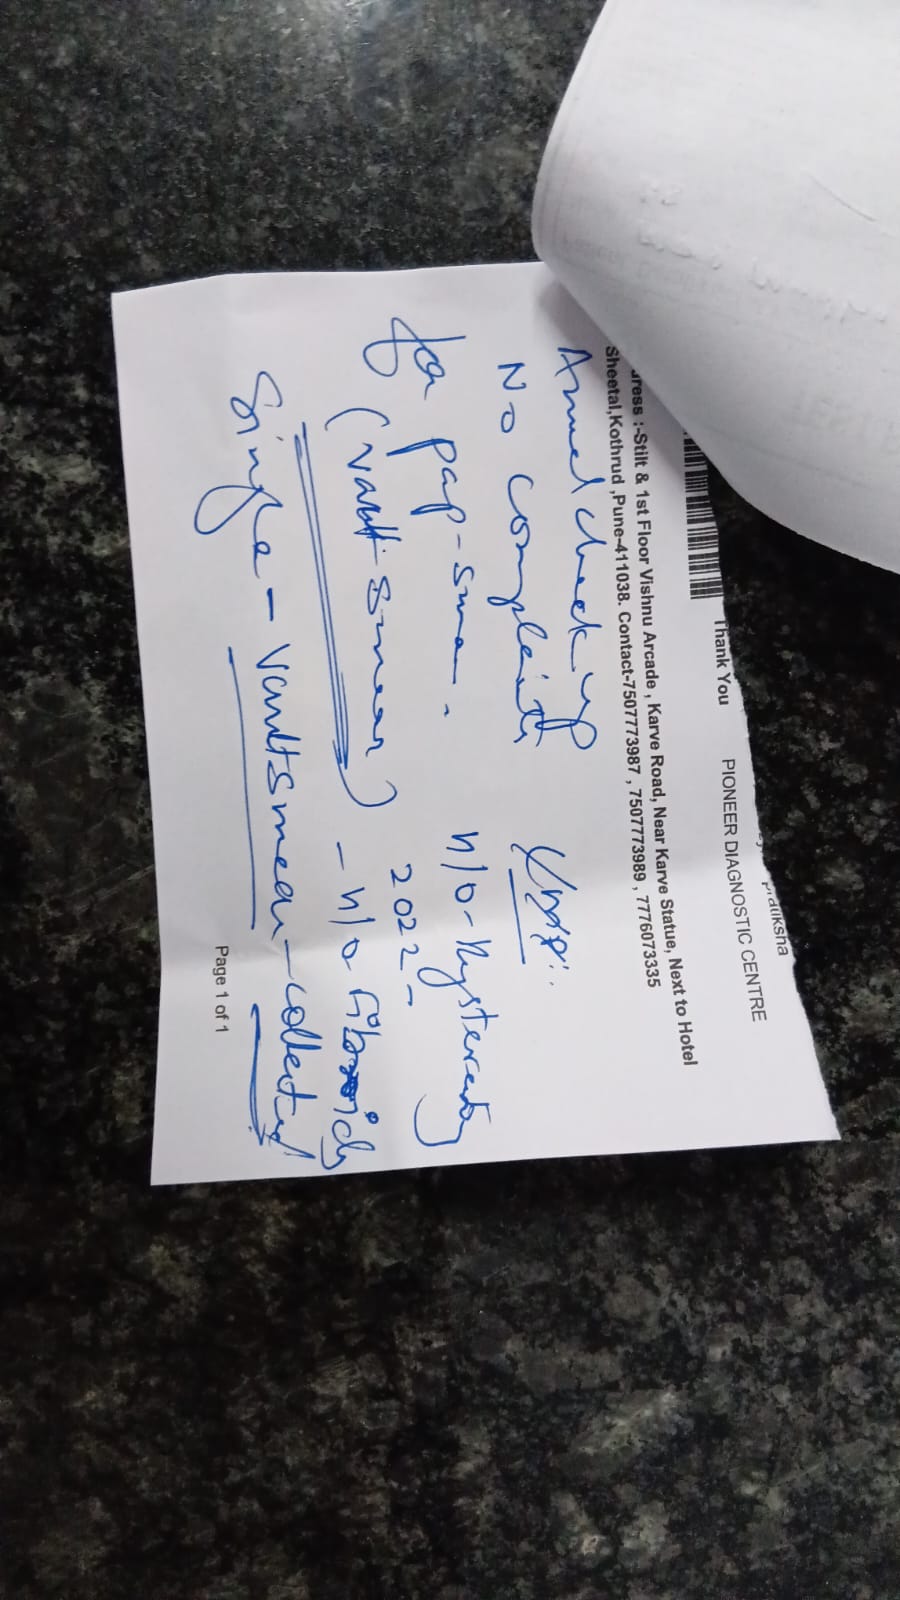 Pratiksha
Thank You PIONEER DIAGNOSTIC CENTRE
dress :-Stilt & 1st Floor Vishnu Arcade , Karve Road, Near Karve Statue, Next to Hotel
Sheetal,Kothrud ,Pune-411038. Contact-7507773987 , 7507773989 , 7776073335
Annual check up
No complaints
for pap-smear. h/o - Hysterectomy
2022 -
(vault smear) - h/o fibroids
Single - vault smear - collected
Page 1 of 1